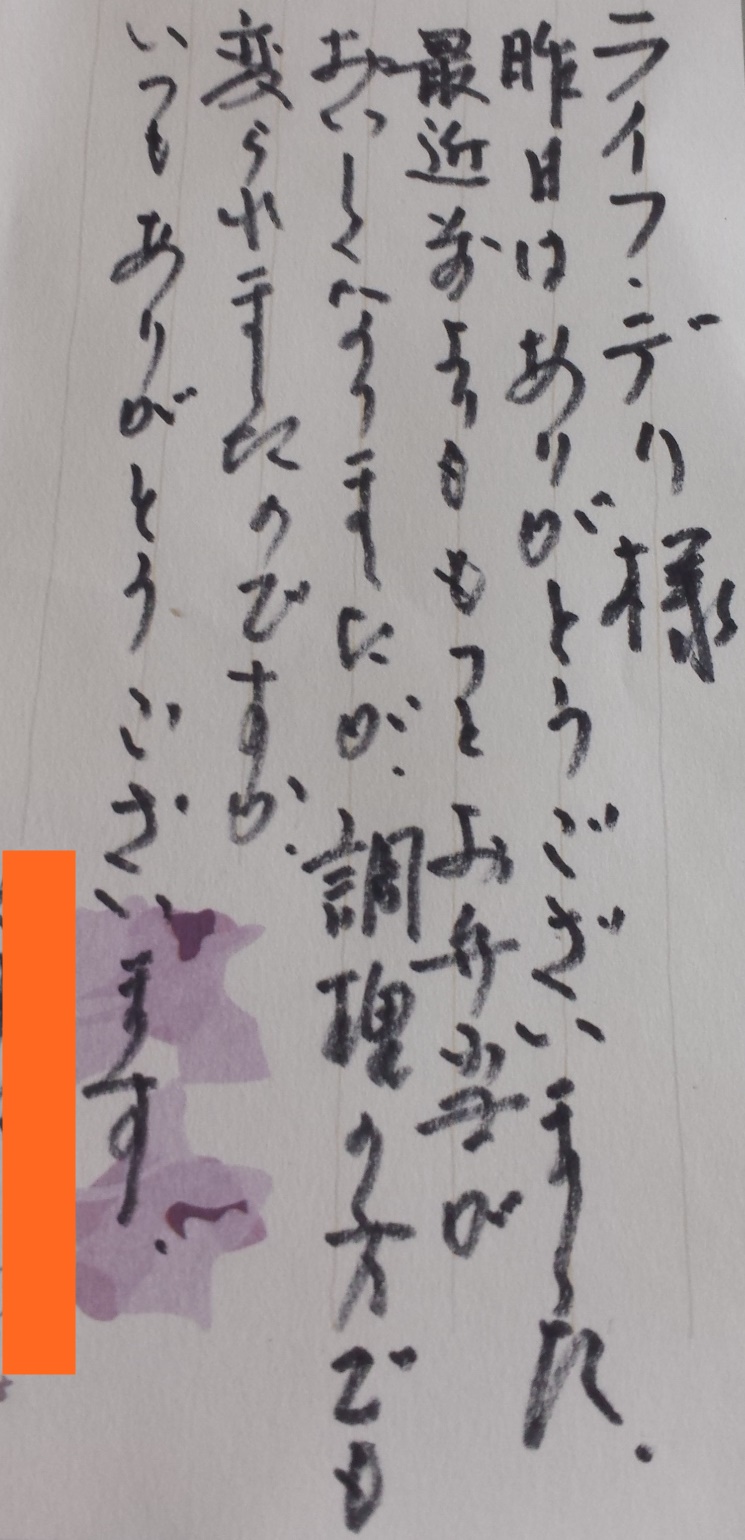 ライフ・デリ様
昨日はありがとうございました.
最近前よりももっとお弁当が
おいしくなりましたが、調理の方でも
変られましたのですか、
いつもありがとうございます.